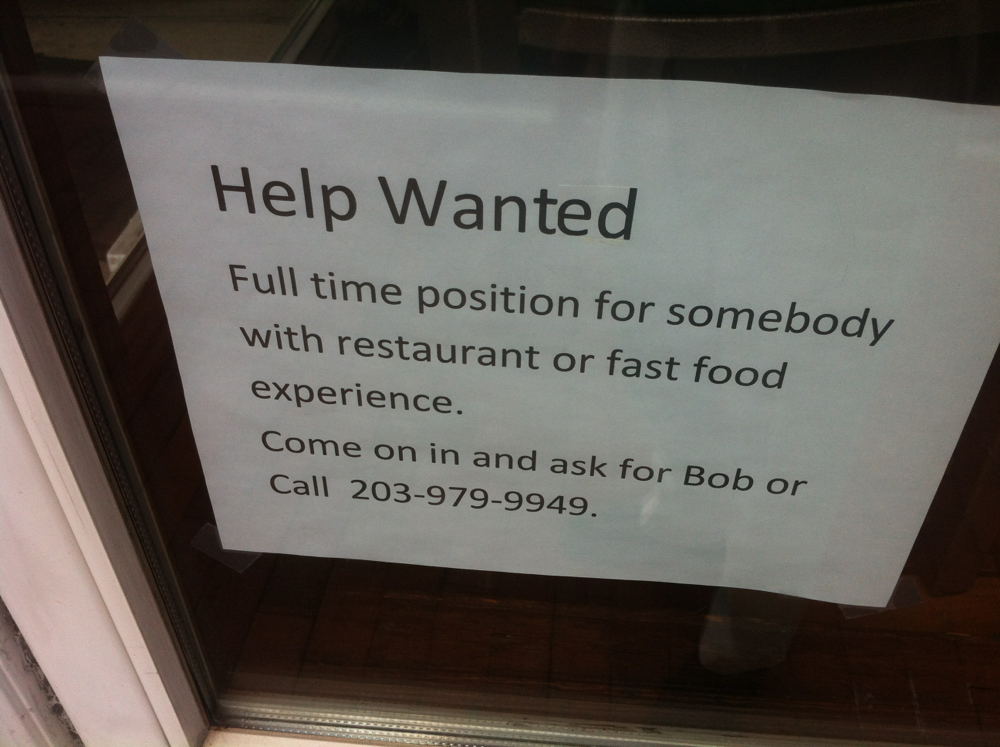 Help Wanted
Full time position for somebody
with restaurant or fast food
experience.
Come on in and ask for Bob or
Call 203-979-9949.